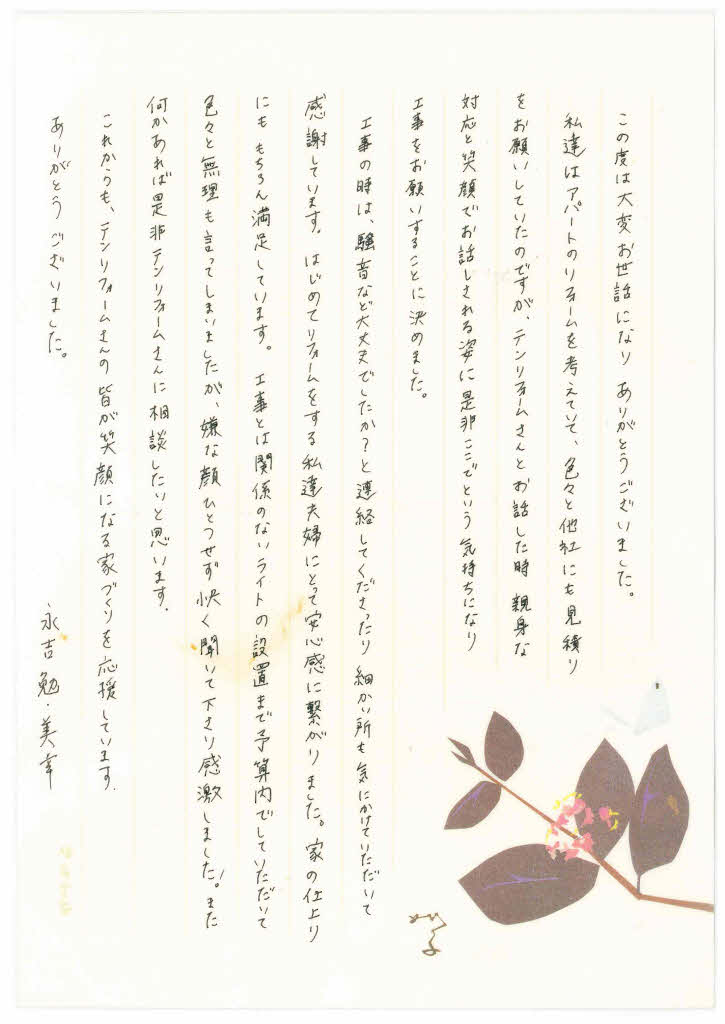 この度は大変お世話になり ありがとうございました。
私達はアパートのリフォームを考えていて、色々と他社にも見積り
をお願いしていたのですが、テンリフォームさんとお話した時 親身な
対応と笑顔でお話しされる姿に是非ここでという気持ちになり
工事をお願いすることに決めました。
工事の時は、騒音など大丈夫でしたか?と連絡してくださったり 細かい所も気にかけていただいて
感謝しています。はじめてリフォームをする私達夫婦にとって安心感に繋がりました。家の仕上り
にも もちろん満足しています。工事とは関係のないライトの設置まで予算内でしていただいて
色々と無理も言ってしまいましたが、嫌な顔ひとつせず快く聞いて下さり感激しました!また
何かあれば是非テンリフォームさんに相談したいと思います.
これからも、テンリフォームさんの皆が笑顔になる家づくりを応援しています.
ありがとうございました。
永吉 勉・美幸